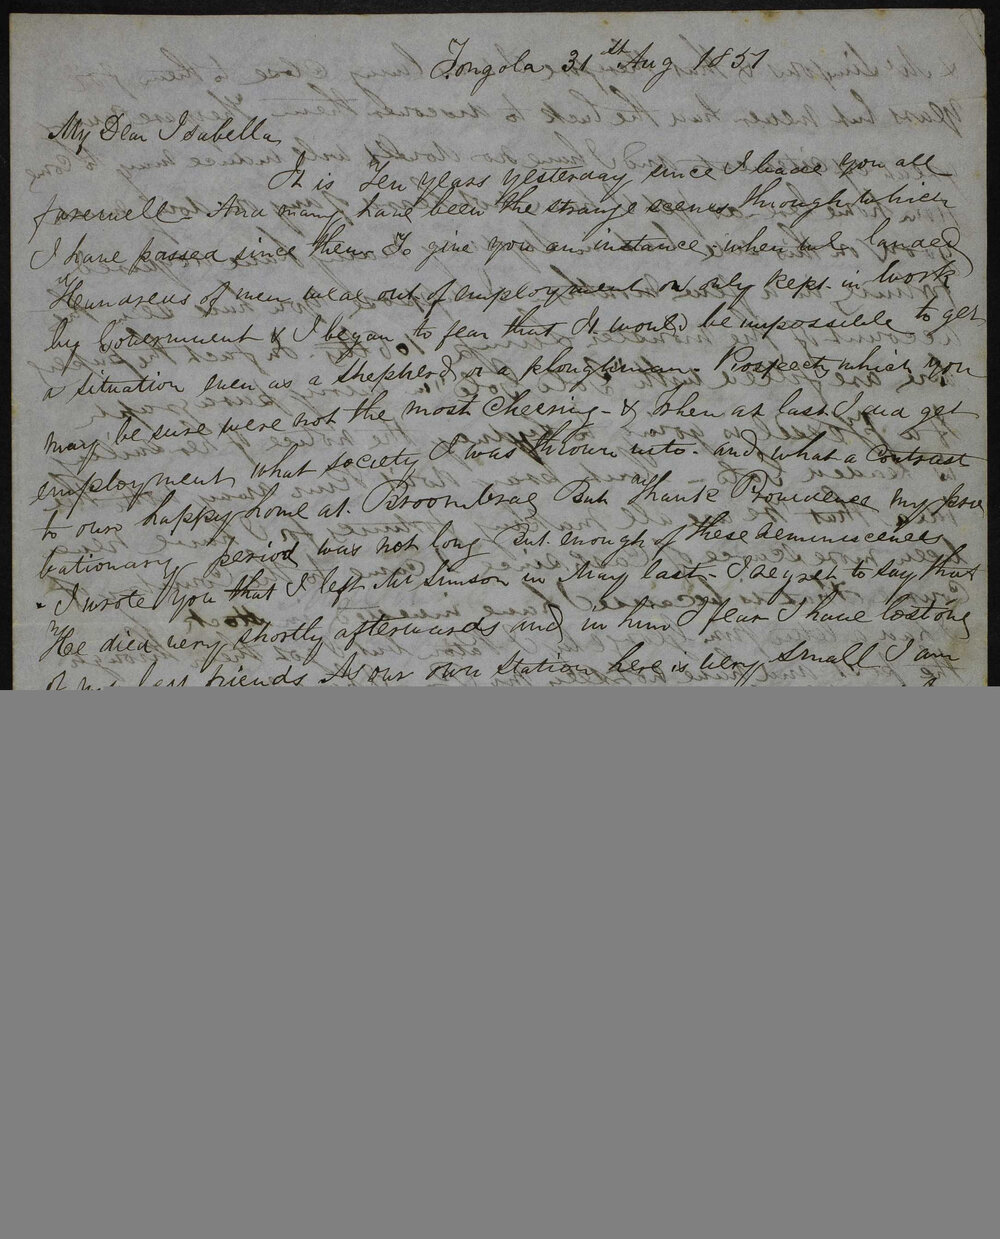 Tongola 31st Aug 1851
My Dear Isabella
It is Ten years yesterday since I bade you all
farewell And many have been the strange scenes through which
I have passed since then To give you an instance when we landed
Hundreds of men were out of employment or only kept in work
by Government & I began to fear that It would be impossible to get
a situation even as a shepherd or a ploughman - Prospects which you
may be sure were not the most Cheering - & when at last I did get
employment what society I was thrown into - and what a Contrast
to our happy home at Broombrae But Thank Providence my pro
bationary period was not long But enough of these Reminiscences
I wrote you that I left Mr Simson in May last - I regret to say that
He died very shortly afterwards and in him I fear I have lost one
of my best friends As our own station here is very small I am